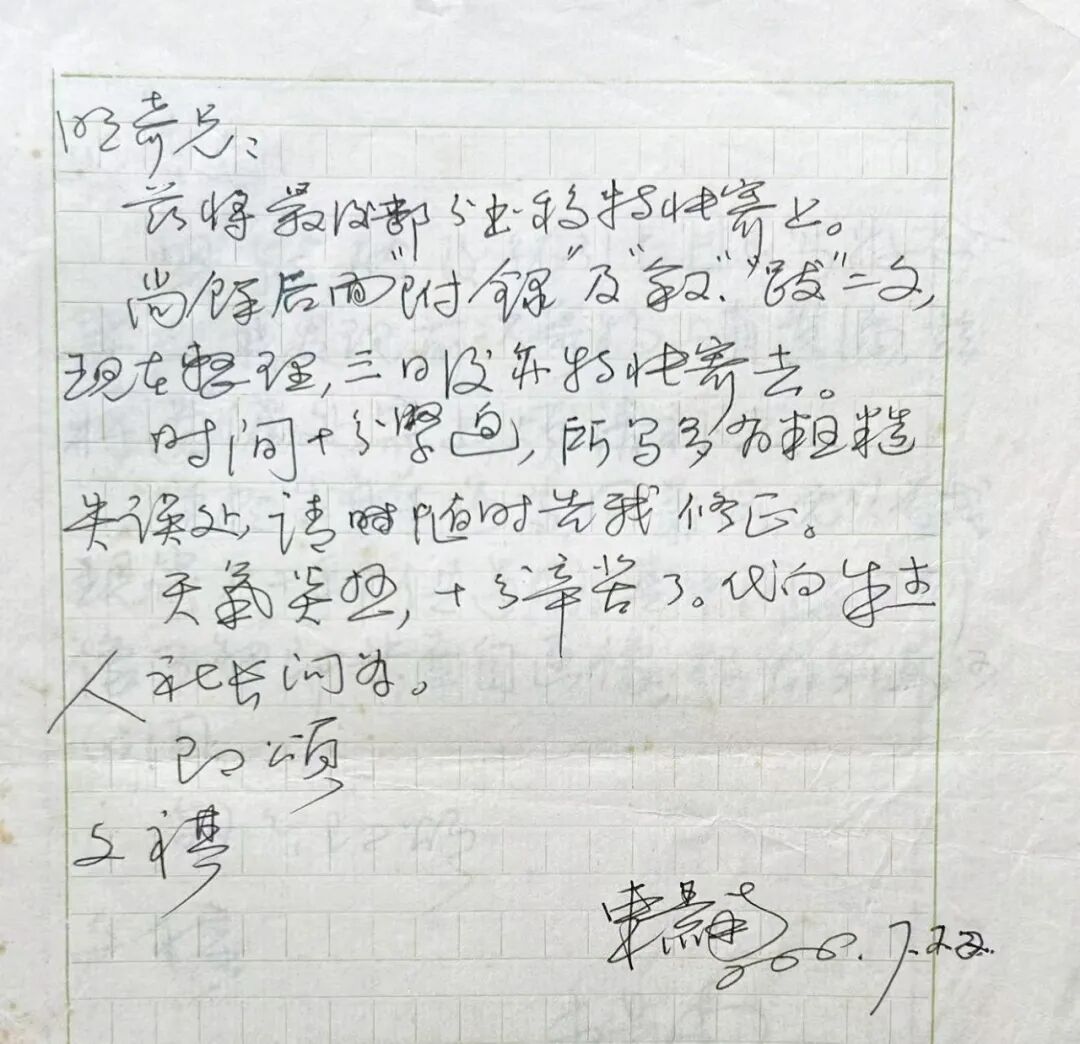 明奇兄：
兹将最后部分书稿特快寄上。
尚馀后面“附录”及“叙”、“跋”二文，
现在整理，三日后亦特快寄去。
时间十分紧迫，所写多有粗糙
失误处，请时随时告我修正。
天氣炎热，十分辛苦了。代向朱杰
人社长问好。
即颂
文祺
7.22.